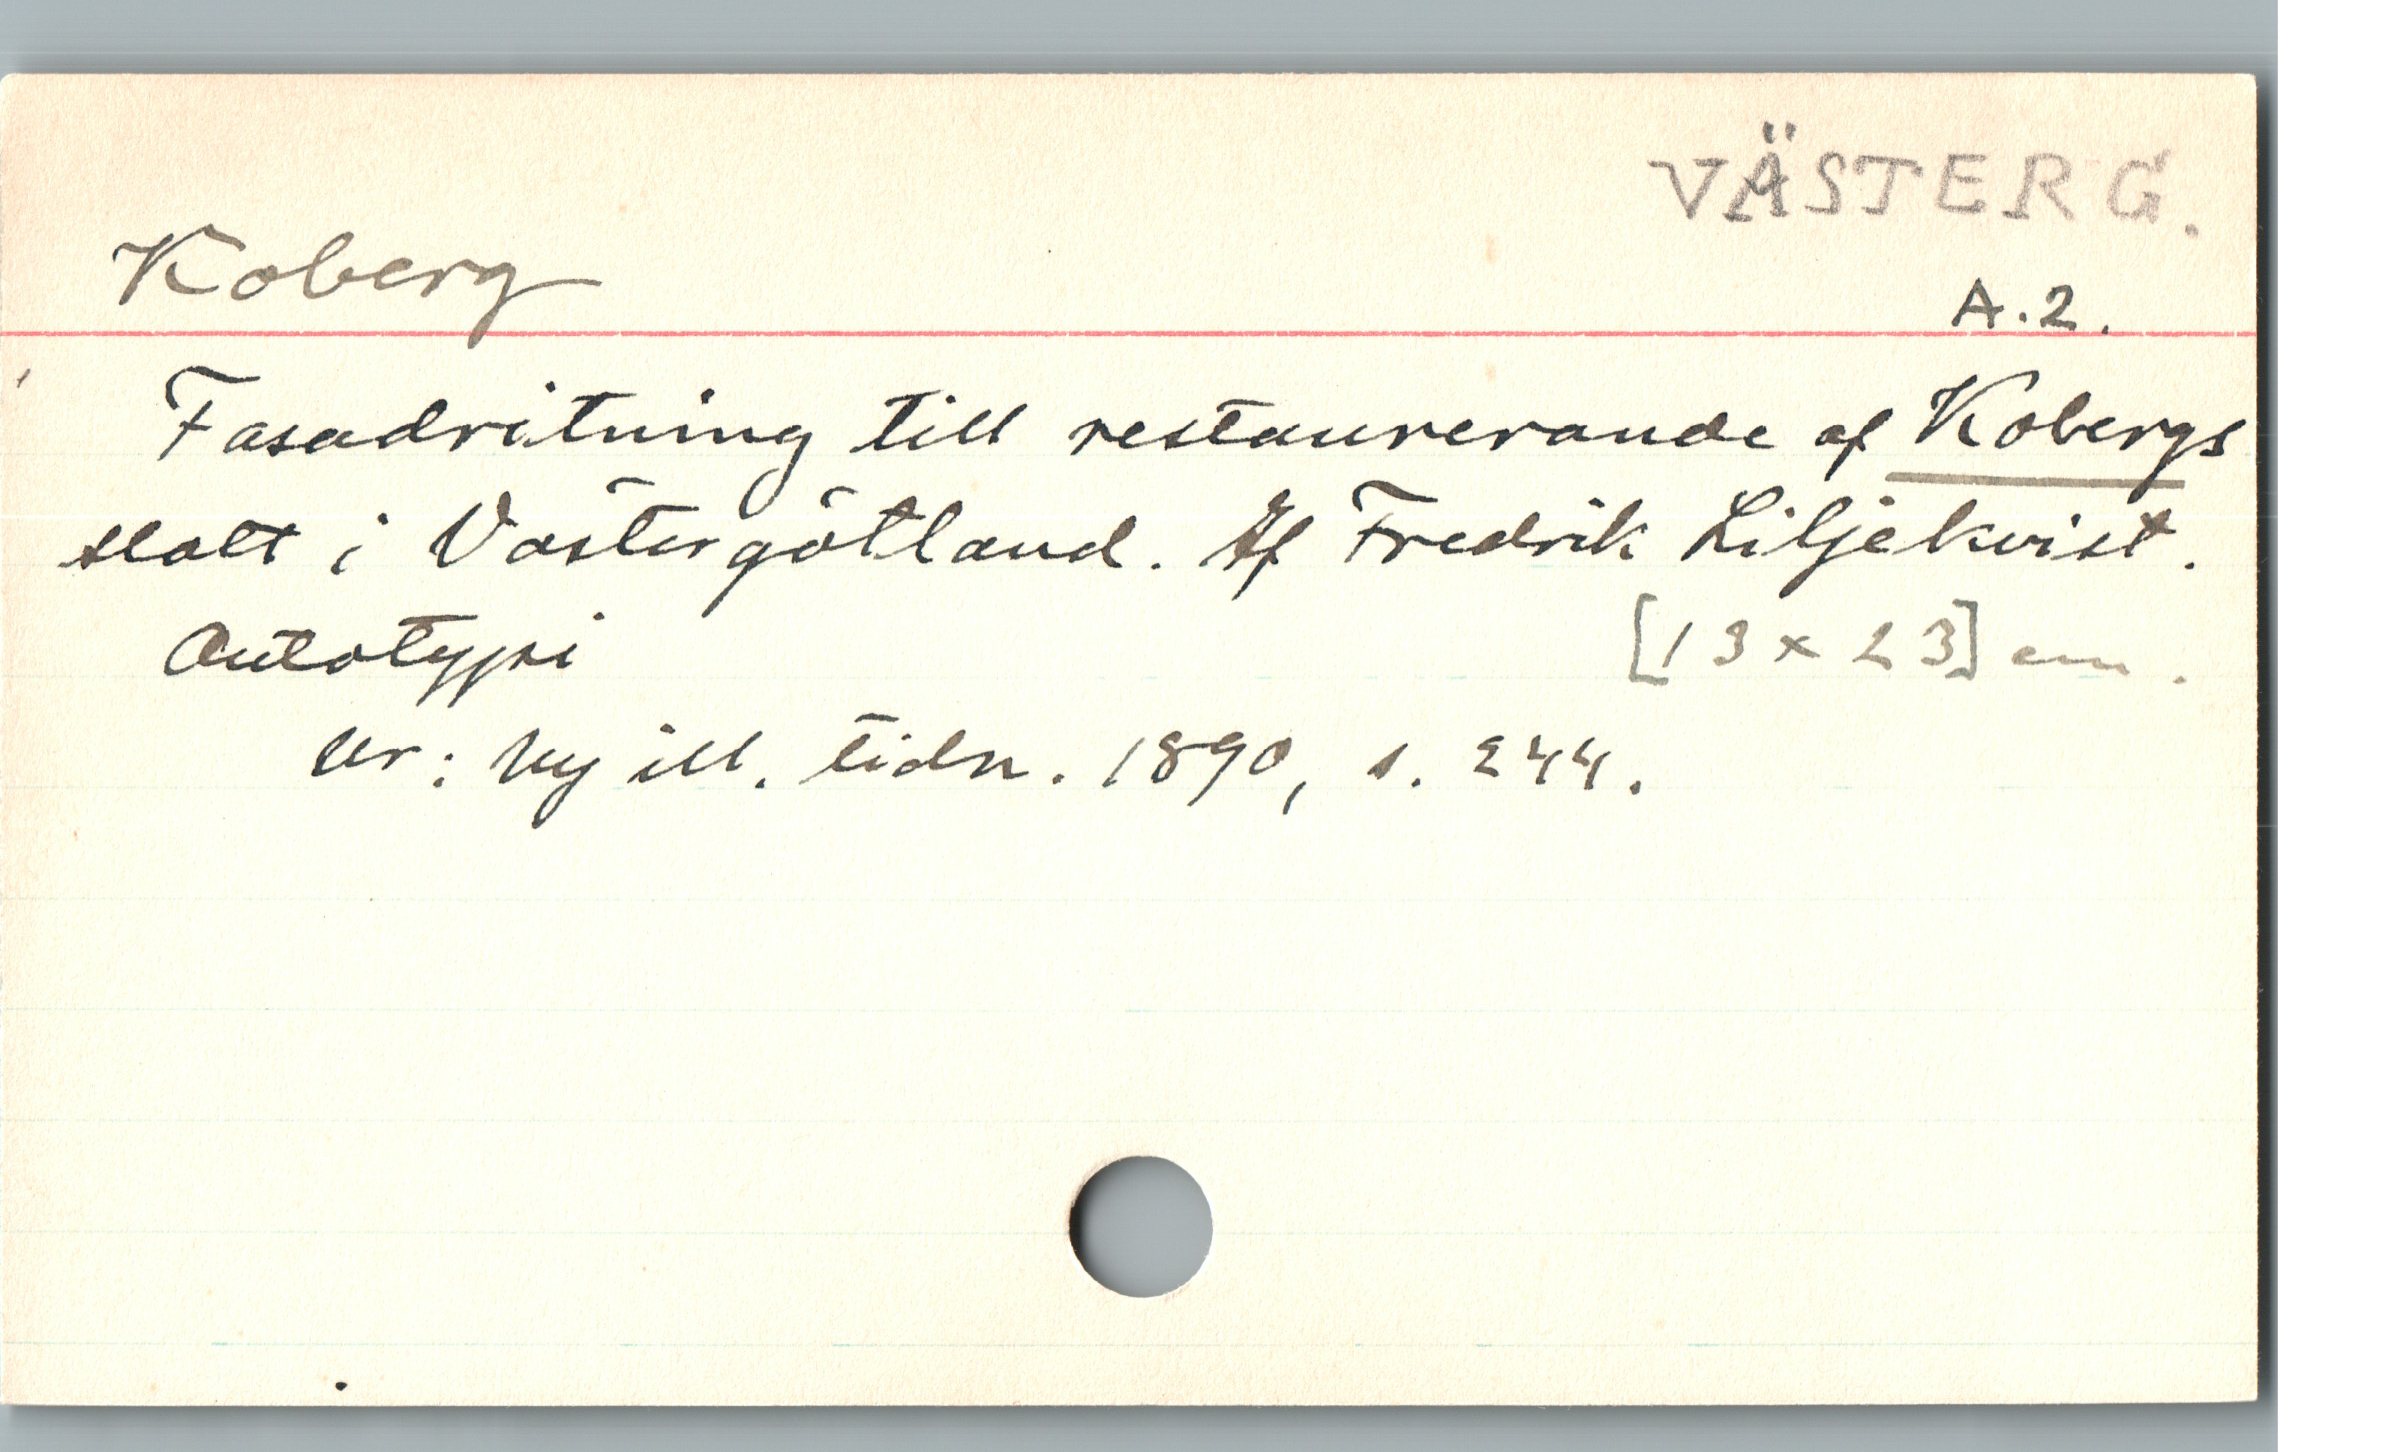 VÄSTERG.
Koberg
A.2.
Fasadritning till restaurerande af Kobergs
slott i Västergötland. Af Fredrik Liljekvist.
Autotypi [13 x 23] cm.
Ur: Ny ill. tidn. 1890, s. 244.